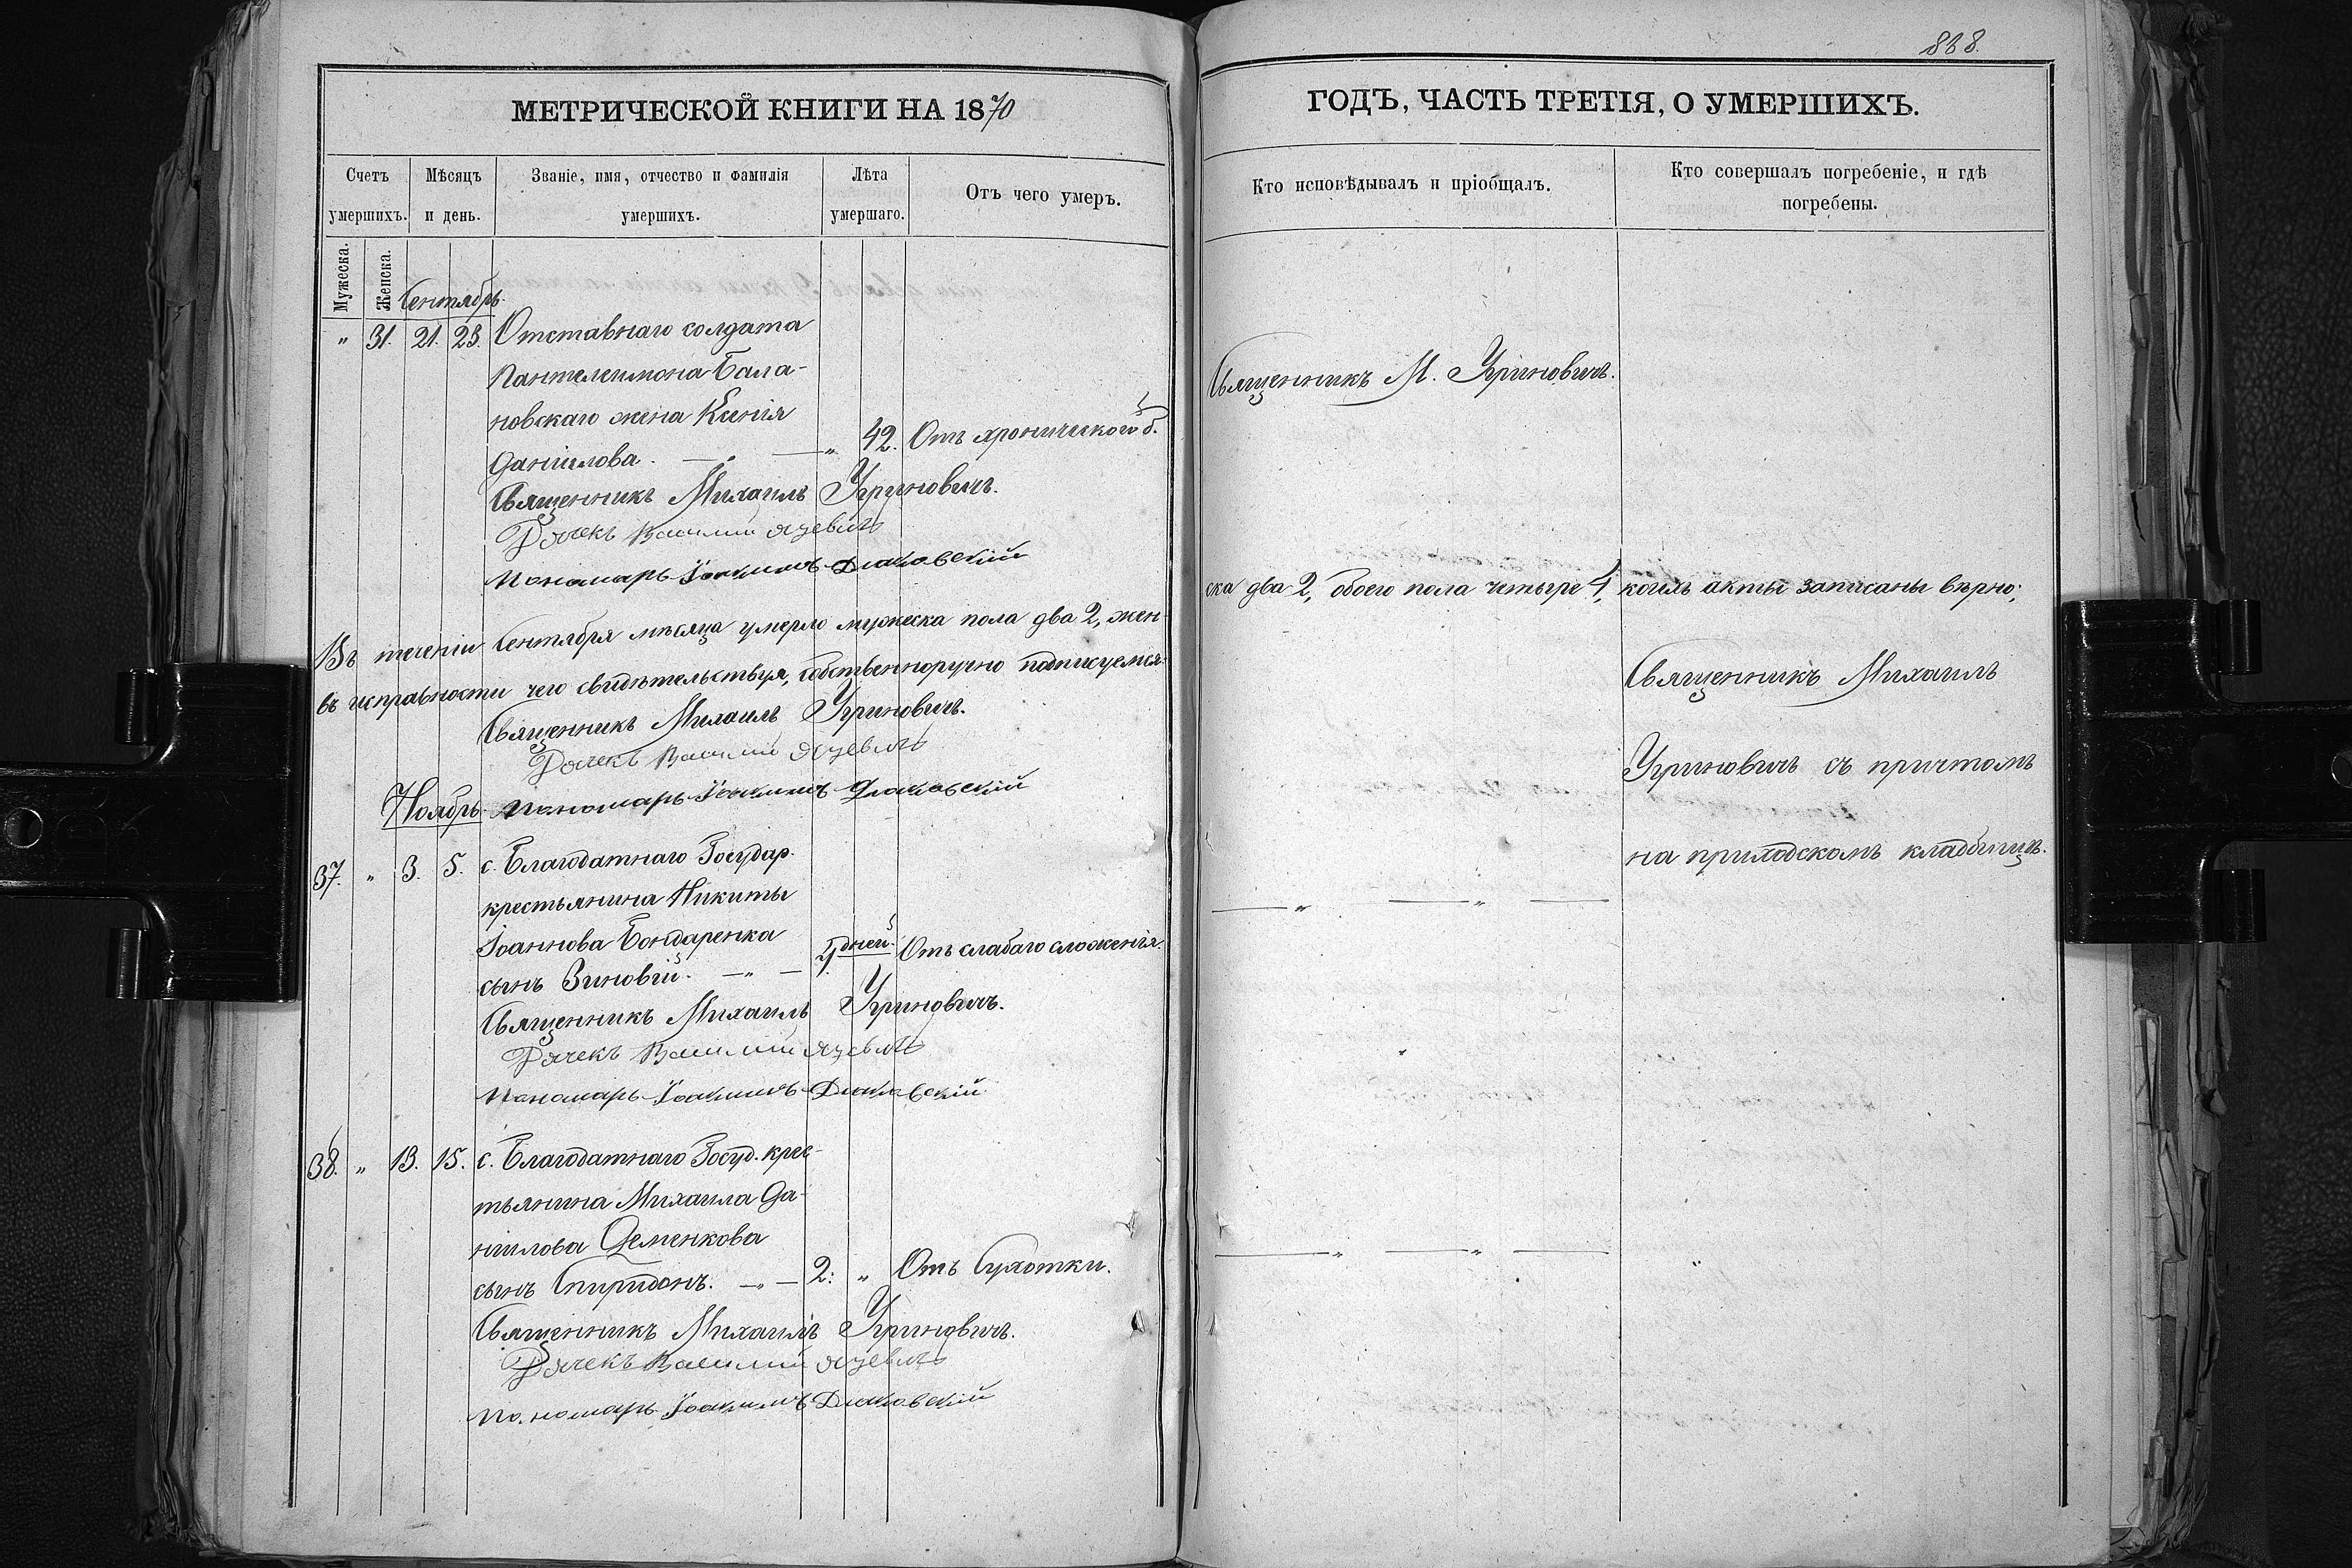 838.
МЕТРИЧЕСКОЙ КНИГИ НА 1870
ГОДЪ, ЧАСТЬ ТРЕТІЯ, О УМЕРШИХЪ.
Счетъ умершихъ.
Мѣсяцъ и день.
Званіе, имя, отчество и фамилія умершихъ.
Лѣта умершаго.
Отъ чего умеръ.
Кто исповѣдывалъ и пріобщалъ.
Кто совершалъ погребеніе, и гдѣ
погребены.
Мужеска.
Женска.
Сентябрь.
" 31. 21. 23. Отставнаго солдата
Пантелеимона Бала-
новскаго жена Ксенія
Даніилова. — " — " 42. Отъ хроническаго б.
Священникъ М. Угриновичъ.
Священникъ Михаилъ Угриновичъ.
Дячекъ Василий Яцевичъ
Пономарь Іоакимъ Дьяковскій
Въ теченіи Сентября мѣсяца умерло мужеска пола два 2, жен-
ска два 2, обоего пола четыре 4, коихъ акты записаны вѣрно;
въ исправности чего свидѣтельствуя, собственноручно подписуемся.
Священникъ Михаилъ Угриновичъ.
Дячекъ Василий Яцевичъ
Пономарь Іоакимъ Дьяковскій
Ноябрь.
37. " 3. 5. с. Благодатнаго Государ.
крестьянина Никиты
Іоаннова Бондаренка
сынъ Зиновій. — " — 4 дней. Отъ слабаго сложенія.
Священникъ Михаилъ
Угриновичъ съ причтомъ
на приходскомъ кладбищѣ.
Священникъ Михаилъ Угриновичъ.
Дячекъ Василий Яцевичъ
Пономарь Іоакимъ Дьяковскій
38. " 13. 15. с. Благодатнаго Госуд. крес-
тьянина Михаила Да-
ніилова Деменкова
сынъ Спиридонъ. — " — 2. " Отъ Сухотки.
Священникъ Михаилъ Угриновичъ.
Дячекъ Василий Яцевичъ
Пономарь Іоакимъ Дьяковскій